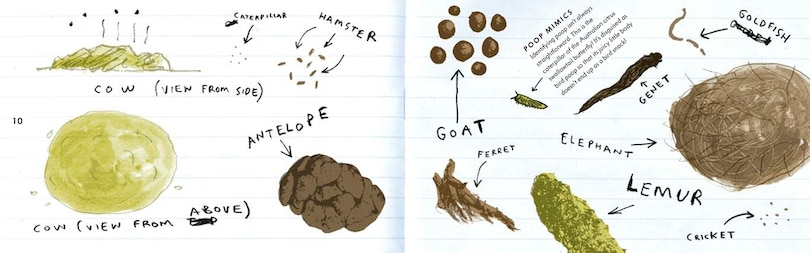 CATERPILLAR
HAMSTER
COW (VIEW FROM SIDE)
10
ANTELOPE
COW (VIEW FROM ABOVE)
POOP MIMICS
Identifying poop isn't always
straightforward. This is the
caterpillar of the Australian citrus
swallowtail butterfly! It's disguised as
bird poop so that its juicy little body
doesn't end up as a bird snack!
GOLDFISH
GENET
GOAT
ELEPHANT
FERRET
LEMUR
CRICKET